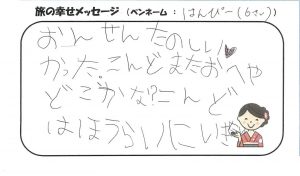 旅の幸せメッセージ（ペンネーム：はんぴー（6さい）
おりんせんたのしい
かった。こんどまたおへや
どこかな？こんど
はほうらいにいき